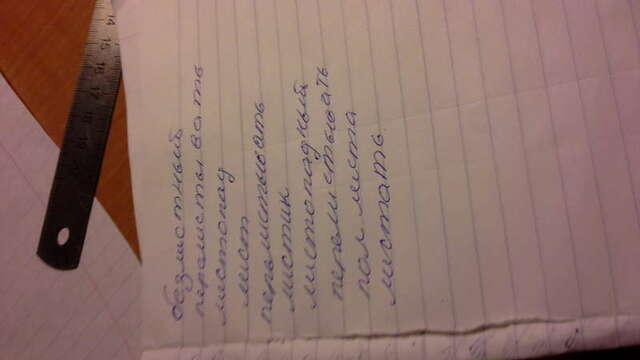 14 15 16 17 18 19
безлистный
перелистывать
листопад
лист
перелистывать
листик
листопадный
перелистывать
пол листа
листать